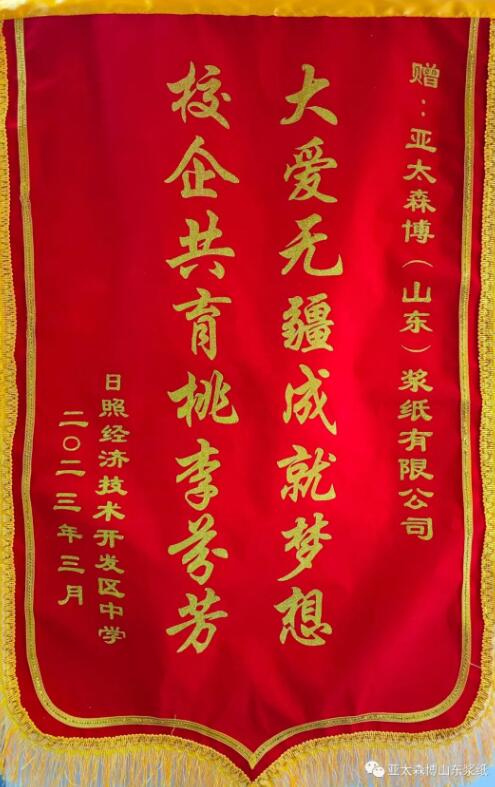 赠：亚太森博（山东）浆纸有限公司
大爱无疆成就梦想
校企共育桃李芬芳
日照经济技术开发区中学
二〇二三年三月
亚太森博山东浆纸